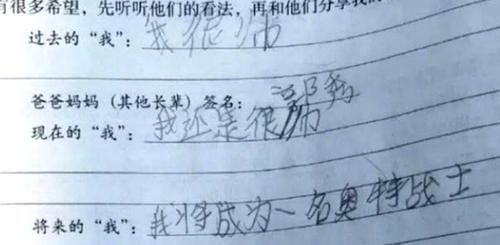 有很多希望,先听听他们的看法,再和他们分享我的
过去的“我”:我很帅
爸爸妈妈(其他长辈)签名:
现在的“我”:我还是很帅
将来的“我”:我将成为一名奥特战士